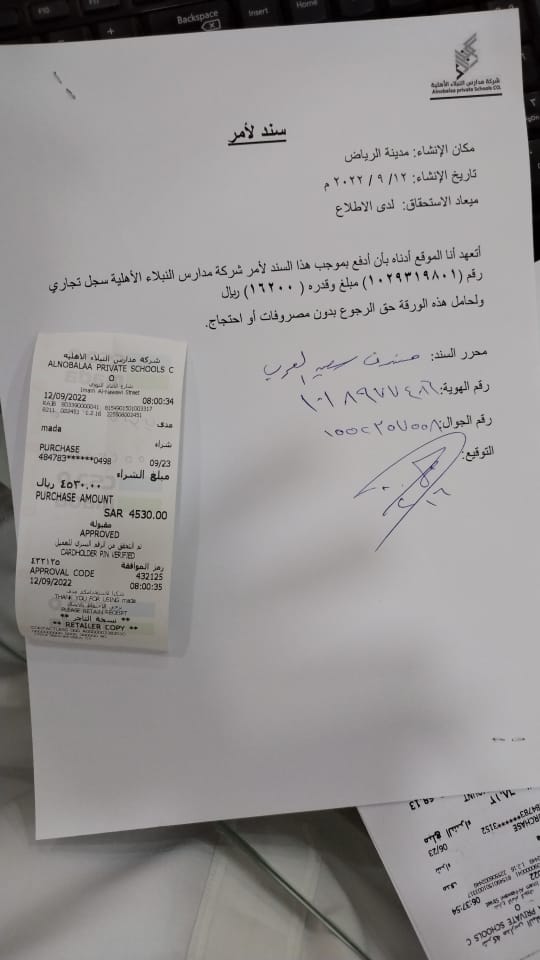 Backspace
Insert
Home
شركة مدارس النبلاء الأهلية
Alnobalaa private Schools CO.
سند لأمر
مكان الإنشاء: مدينة الرياض
تاريخ الإنشاء: ١٢ / ٩ / ٢٠٢٢ م
ميعاد الاستحقاق: لدى الاطلاع
أتعهد أنا الموقع أدناه بأن أدفع بموجب هذا السند لأمر شركة مدارس النبلاء الأهلية سجل تجاري
رقم (١٠٢٩٣١٩٨٠١) مبلغ وقدره ( ١٦٢٠٠ ) ريال
ولحامل هذه الورقة حق الرجوع بدون مصروفات أو احتجاج.
محرر السند:
رقم الهوية:
رقم الجوال:
التوقيع:
شركة مدارس النبلاء الاهليه
ALNOBALAA PRIVATE SCHOOLS C
O
شارع الإمام النووي
Imam Al-Nawawi Street
12/09/2022 08:00:34
مدى
mada
شراء
PURCHASE
484783******0498 09/23
مبلغ الشراء
٤٥٣٠.٠٠ ريال
PURCHASE AMOUNT
SAR 4530.00
مقبولة
APPROVED
تم التحقق من الرقم السري للعميل
CARDHOLDER PIN VERIFIED
رمز الموافقة ٤٣٢١٢٥
APPROVAL CODE 432125
12/09/2022 08:00:35
شكرا لاستخدامكم مدى
THANK YOU FOR USING mada
يرجى الاحتفاظ بالايصال
PLEASE RETAIN RECEIPT
** نسخة التاجر **
** RETAILER COPY **
مبلغ الشراء
******3152
06/23
شراء
مدى
06:37:54
PRIVATE SCHOOLS C
O